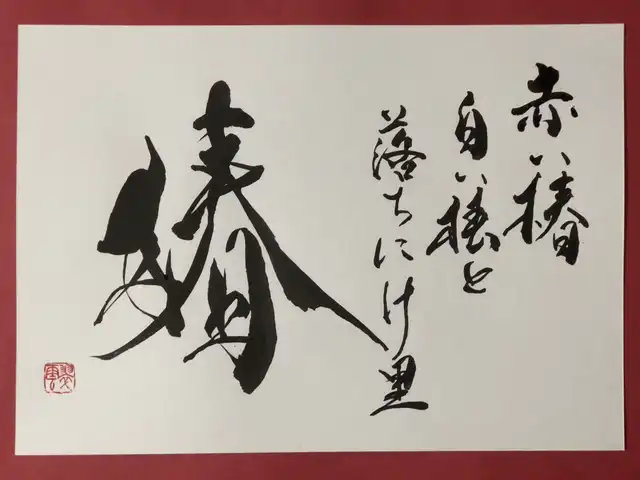 赤い椿
白い椿と
落ちにけ里
椿